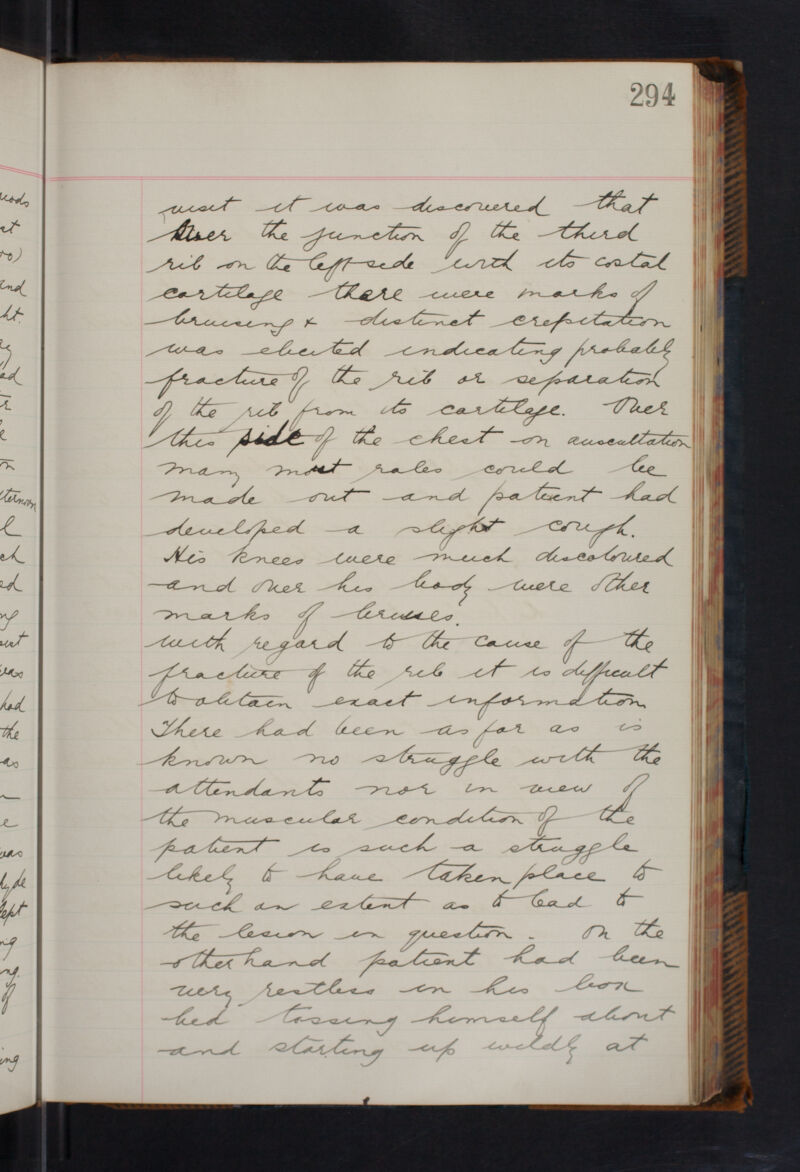 294
visit it was discovered that
Over the junction of the third
rib on the left side with its costal
cartilage there were marks of
bruising & distinct crepitation
was elicited indicating probably
fracture of the rib or separation
of the rib from its cartilage. Over
this side of the chest on auscultation
many moist rales could be
made out and patient had
developed a slight cough.
His knees were much discoloured
and over his body were other
marks of bruises.
with regard to the cause of the
fracture of the rib it is difficult
to obtain exact information
There had been as far as is
known no struggle with the
attendants nor in view of
the muscular condition of the
patient is such a struggle
likely to have taken place to
such an extent as to lead to
the lesion in question. On the
other hand patient had been
very restless in his box
bed tossing himself about
and starting up wildly at